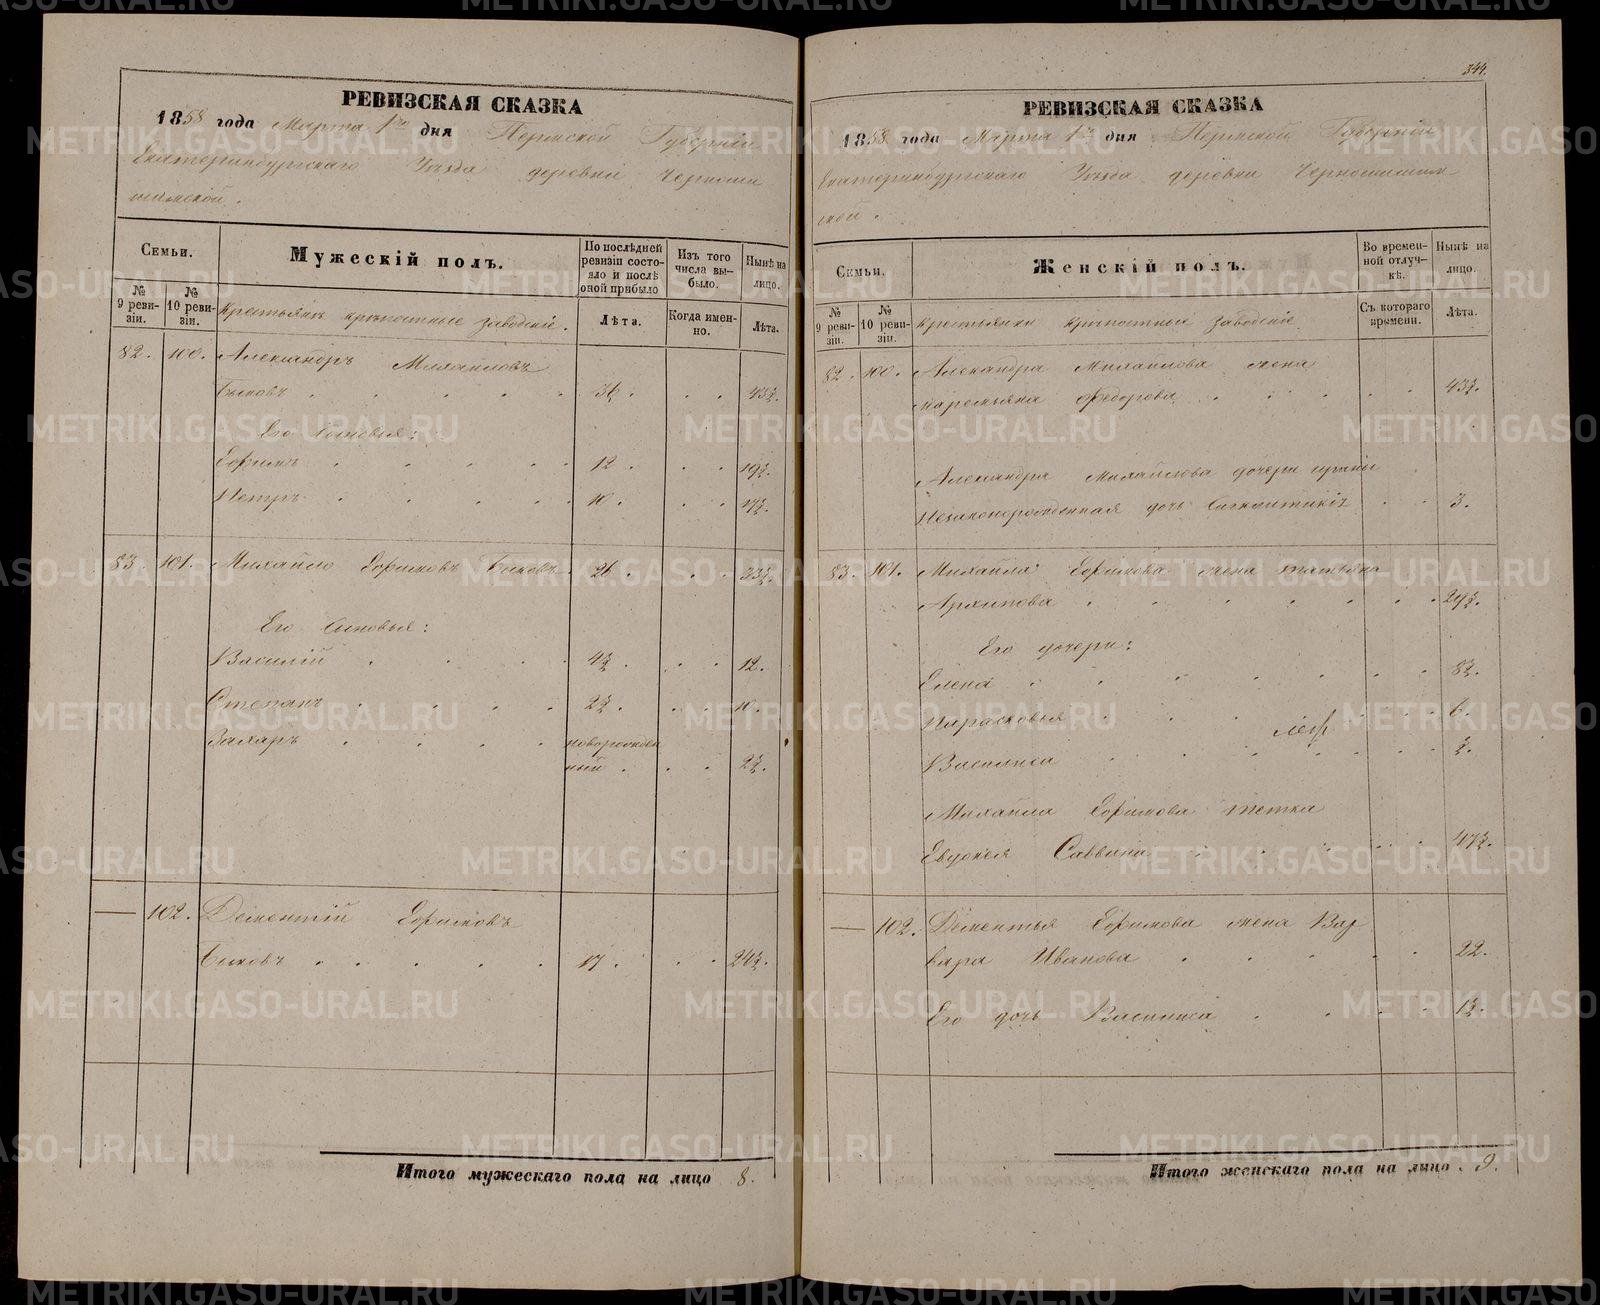 РЕВИЗСКАЯ СКАЗКА
1858 года Марта 1го дня Пермской Губерніи
Екатеринбургскаго Уѣзда деревни Черноши
шимской.
Семьи.
№ 9 ревизіи.
№ 10 ревизіи.
Мужескій полъ.
По послѣдней ревизіи состояло и послѣ оной прибыло
Изъ того числа выбыло.
Нынѣ на лицо.
Лѣта.
Когда именно.
Лѣта.
Крестьяне крѣпостные заводскіе.
82. 100. Александръ Михайловъ
Быковъ 36. 43½.
Его Сыновья:
Ефимъ 12. 19½.
Петръ 10. 17½.
83. 101. Михайло Ефимовъ Быковъ 26. 33½.
Его Сыновья:
Василій 4½. 12.
Степанъ 2½. 10.
Захаръ новорожден
ный 2½.
— 102. Дементій Ефимовъ
Быковъ 17. 24½.
Итого мужескаго пола на лицо 8.
344.
РЕВИЗСКАЯ СКАЗКА
1858 года Марта 1го дня Пермской Губерніи
Екатеринбургскаго Уѣзда деревни Черношишим
ской.
Семьи.
№ 9 ревизіи.
№ 10 ревизіи.
Женскій полъ.
Во временной отлучкѣ.
Нынѣ на лицо.
Съ котораго времени.
Лѣта.
Крестьянки крѣпостныя заводскіе
82. 100. Александра Михайлова жена
Маремьяна Федорова 43½.
Александра Михайлова дочери
Незаконорожденная дочь 3.
83. 101. Михайла Ефимова жена Татьяна
Архипова 29½.
Его дочери:
Елена 8½.
Парасковья 6.
Василиса ½.
Михайла Ефимова тетка
Евдокея Саввина 47½.
— 102. Дементья Ефимова жена Вар
вара Иванова 22.
Его дочь Василиса 1½.
Итого женскаго пола на лицо 9.
METRIKI.GASO-URAL.RU